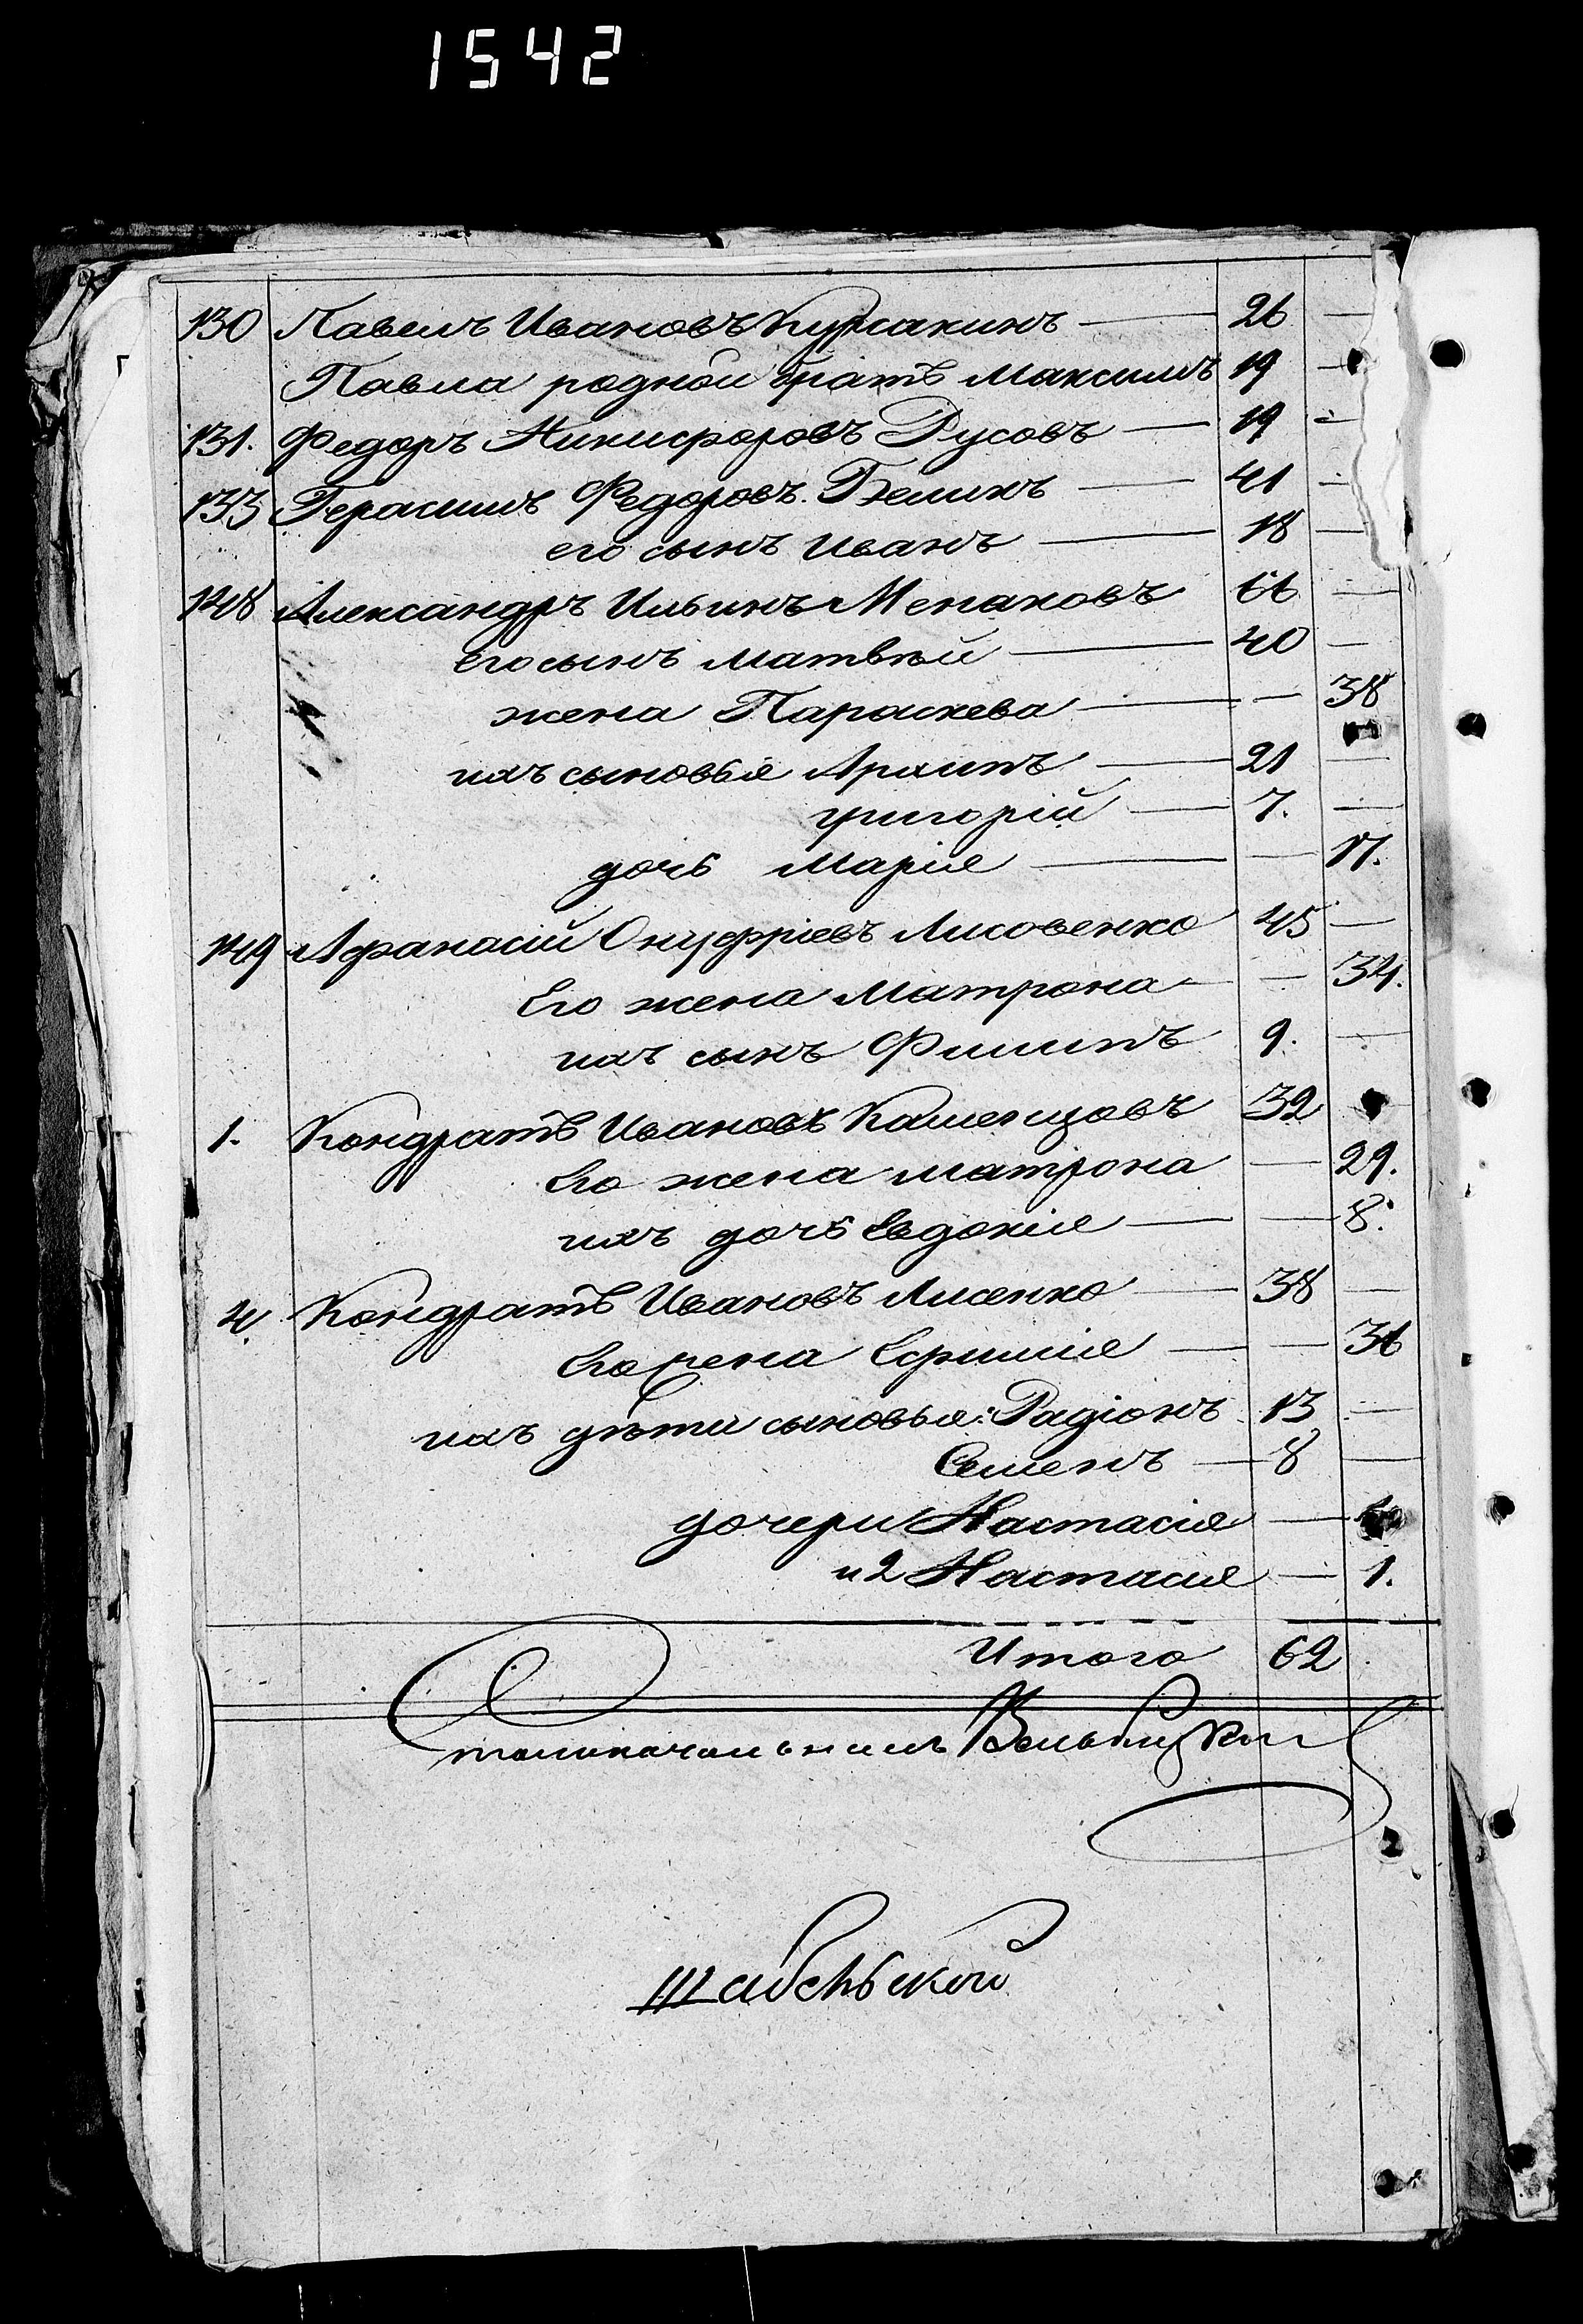 1542
130 Павелъ Ивановъ Кулакинъ — 26 —
Павла родной братъ Максимъ 19 —
131. Федоръ Никифоровъ Русовъ — 19 -
133 Герасимъ Федоровъ Беликъ — 41 —
его сынъ Иванъ — 18 —
148 Александръ Ильинъ Менаковъ 66 —
его сынъ Матвѣй — 40 —
жена Параскева — — 38
ихъ сыновья Архипъ — 21 —
григорій — 7. —
дочь Марія — — 17.
149 Афанасій Онуфріевъ Лисовенко 45 —
Его жена Матрона — — 34.
ихъ сынъ Филипъ 9. —
1. Кондратъ Ивановъ Каменцовъ 32
Его жена матрона — 29.
ихъ дочь Евдокія — — 8.
4. Кондратъ Ивановъ Лисенко — 38 —
Его жена Ефимія — — 36
ихъ дѣти сыновья: Радіонъ 13 —
Семенъ — 8 —
дочери Настасія —
и 2 Настасія — 1.
Итого 62
Столоначальникъ